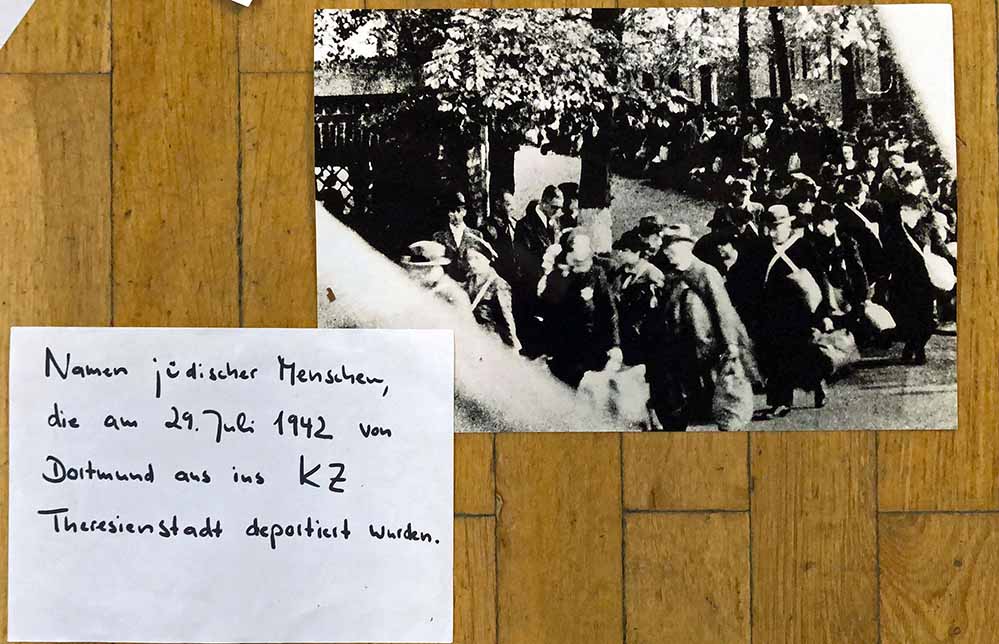 Namen jüdischer Menschen,
die am 29. Juli 1942 von
Dortmund aus ins KZ
Theresienstadt deportiert wurden.